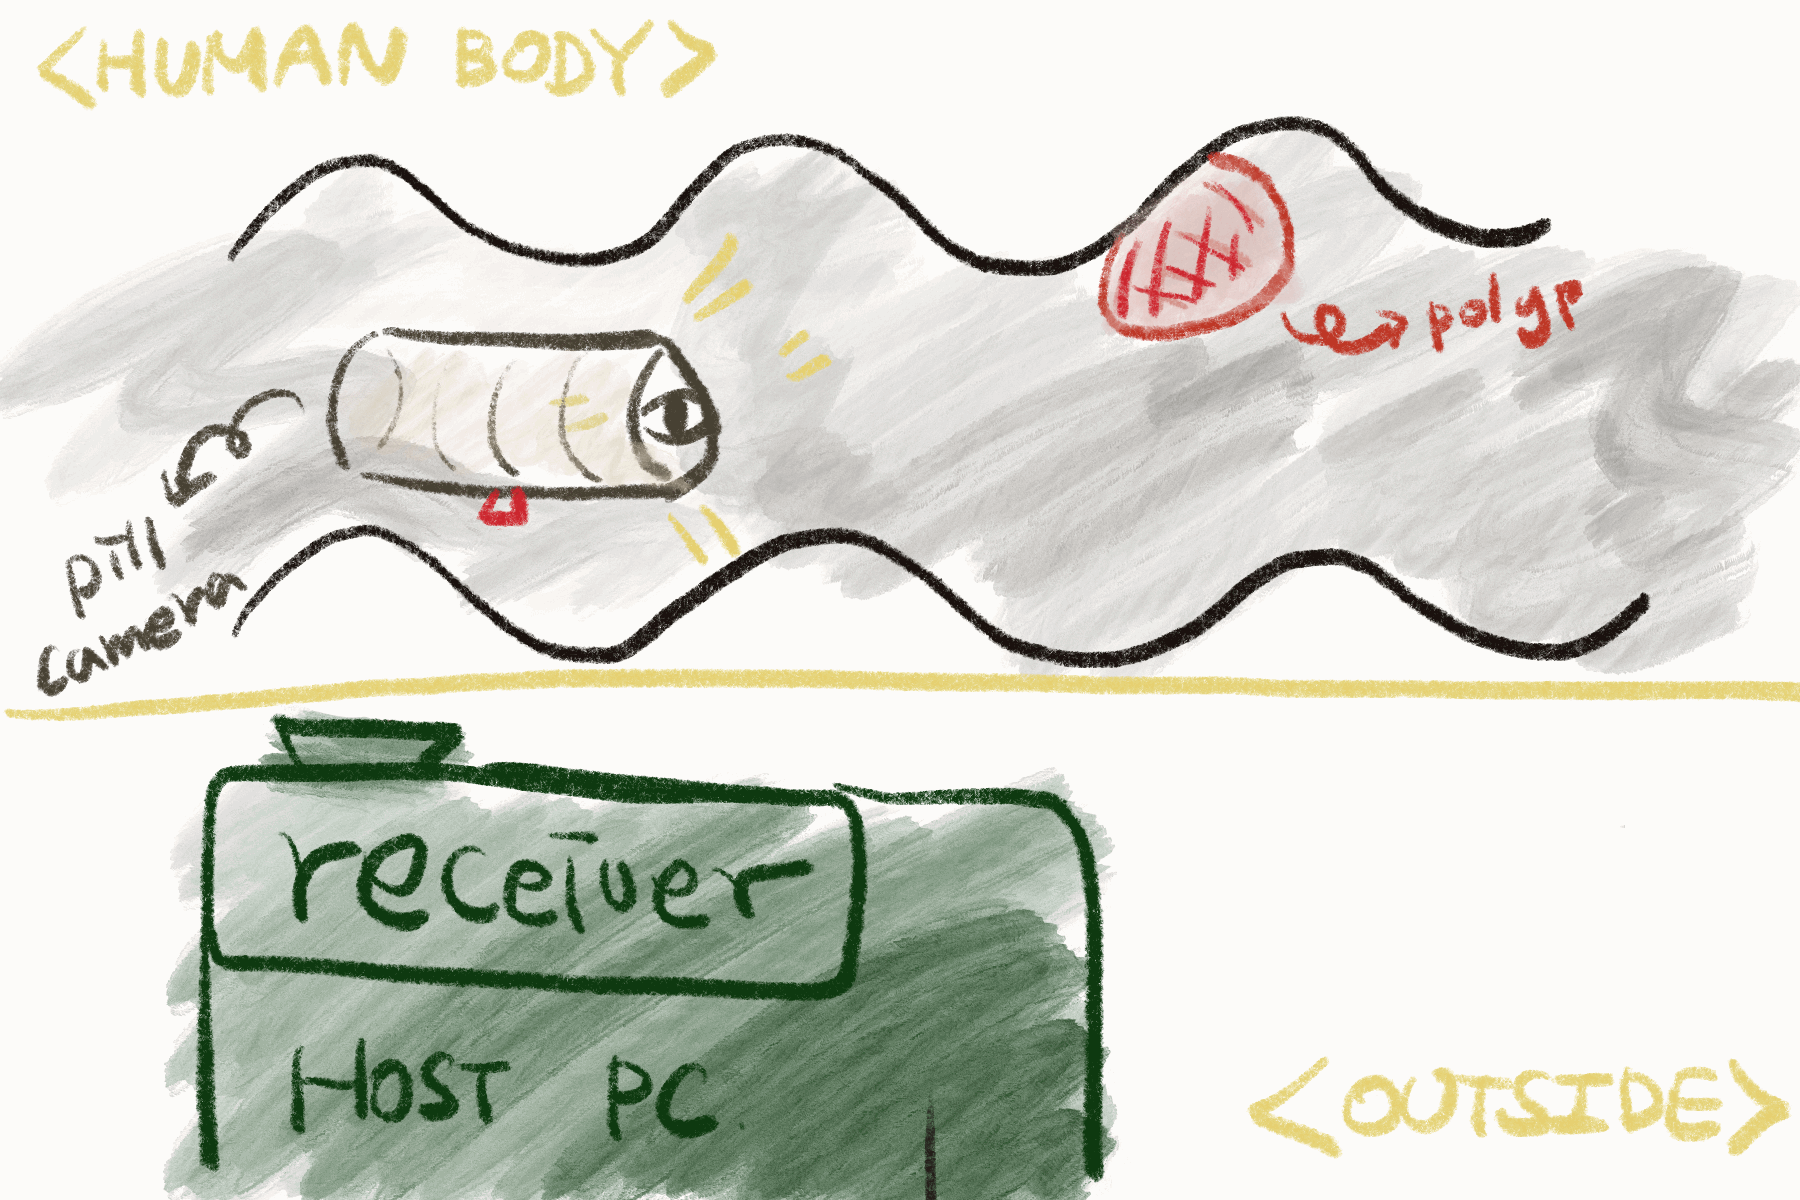 <HUMAN BODY>
polyp
pill
camera
receiver
HOST PC
<OUTSIDE>